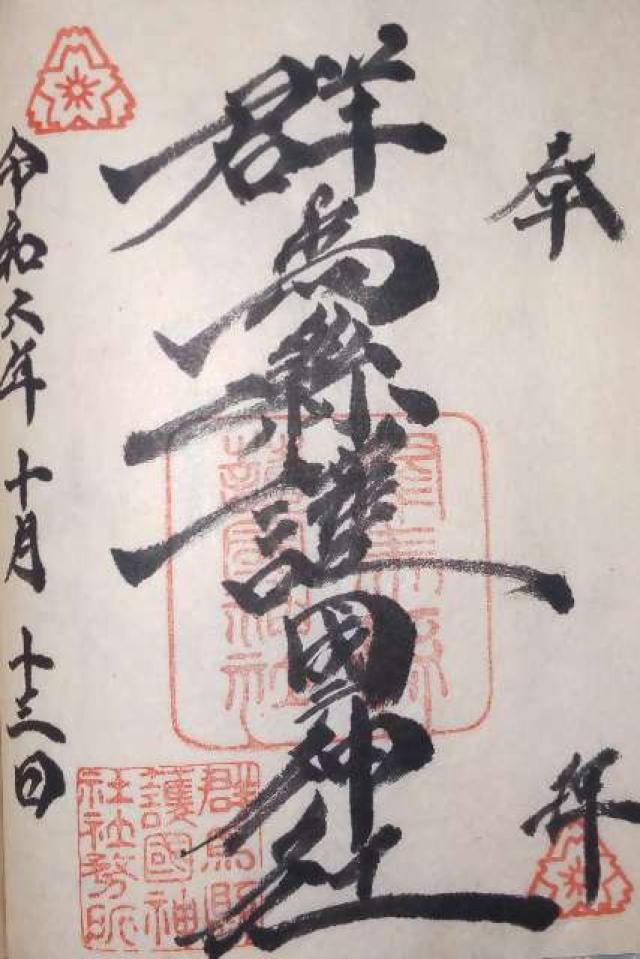 奉
拝
群馬縣護國神社
令和六年十月十三日
群馬縣
護國神社
群馬縣
護國神
社社務所